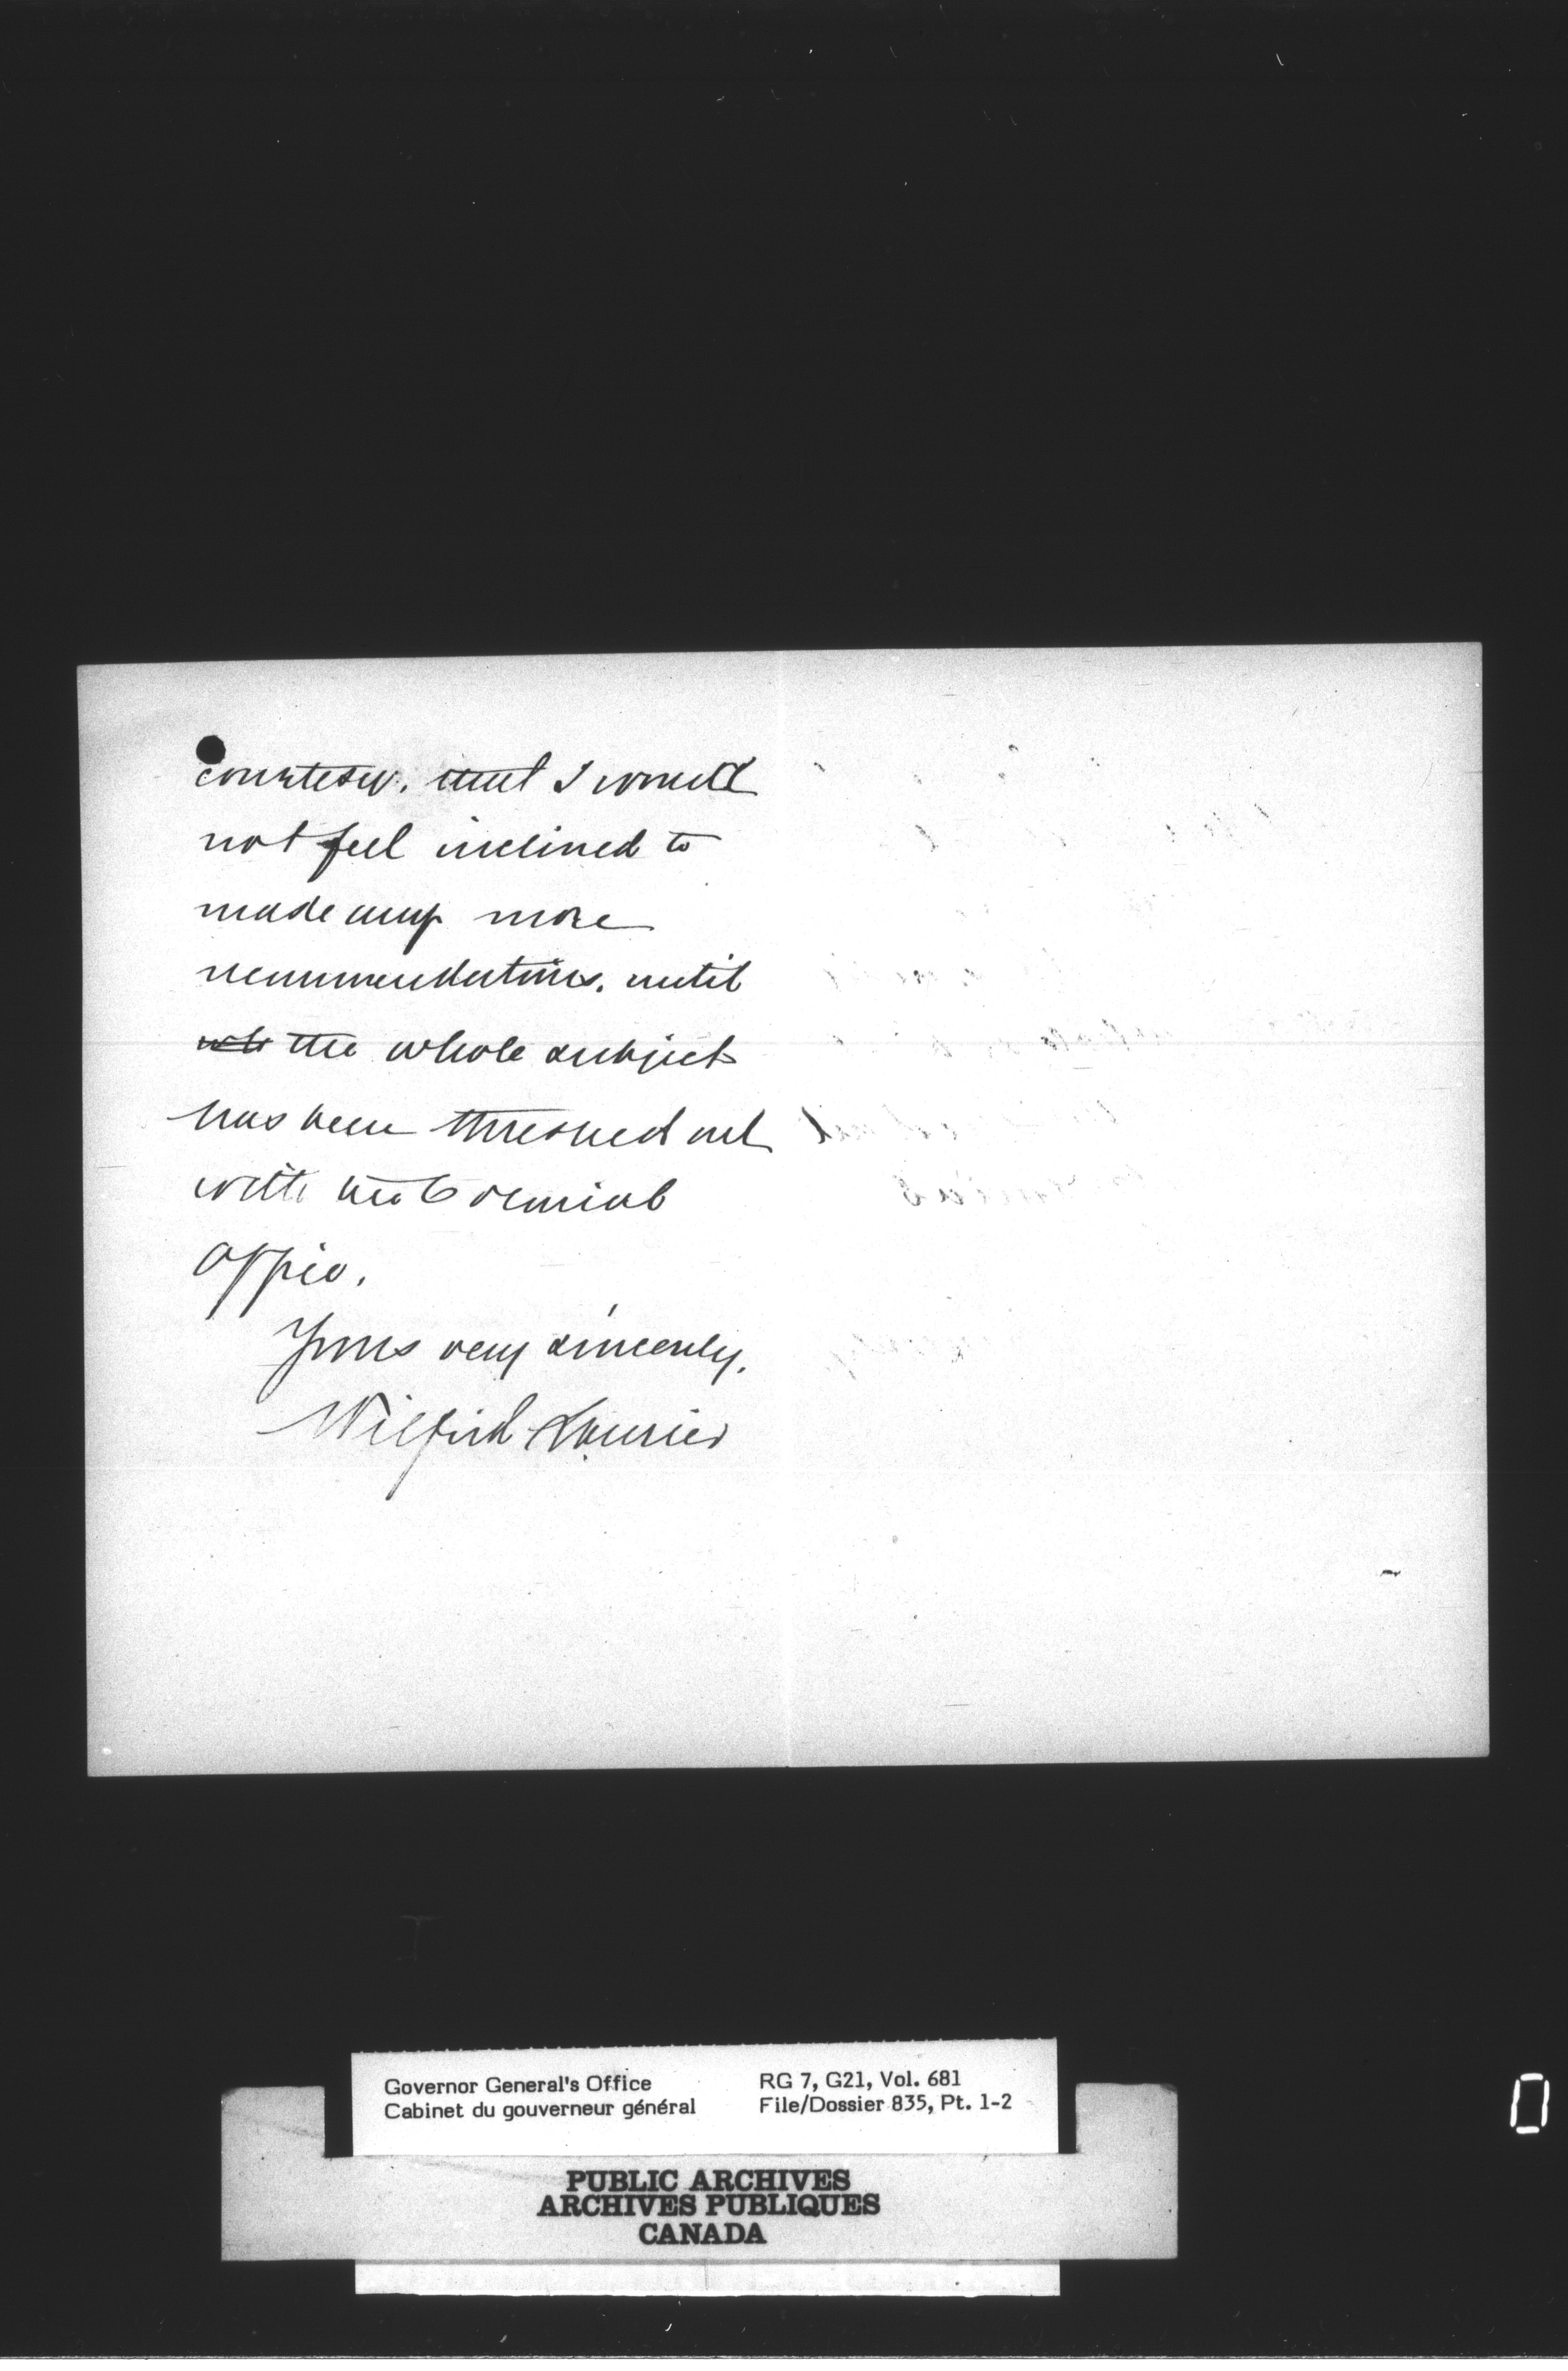 courtesy. that I would
not feel inclined to
made any more
recommendations. until
the whole subject
has been threshed out
with the Colonial
Office.
Yours very sincerely,
Wilfrid Laurier
Governor General's Office
Cabinet du gouverneur général
RG 7, G21, Vol. 681
File/Dossier 835, Pt. 1-2
PUBLIC ARCHIVES
ARCHIVES PUBLIQUES
CANADA